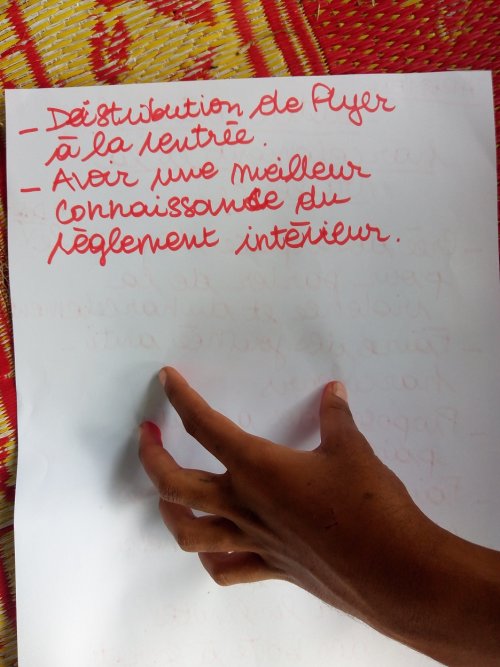 - Distribution de Flyer
à la rentrée.
- Avoir une meilleur
connaissance du
règlement intérieur.